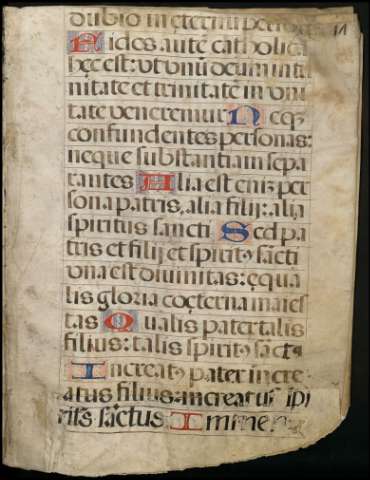 dubio in ęternū peribit 11
Fides autē catholica
hęc est: ut unū deum in tri
nitate et trinitatē in uni
tate veneremur Neq3
confundentes personas:
neque substantiam sepa
rantes Alia est eniz per
sona patris, alia filij: alia
spiritus sancti Sed pa
tris et filij et spiritꝰ sācti
una est diuinitas: ęqua
lis gloria coęterna maies
tas Qualis pater talis
filius: talis spiritꝰ sāctꝰ
Increatꝰ pater incre
atus filius: increatus spi
ritꝰ sāctus Immen